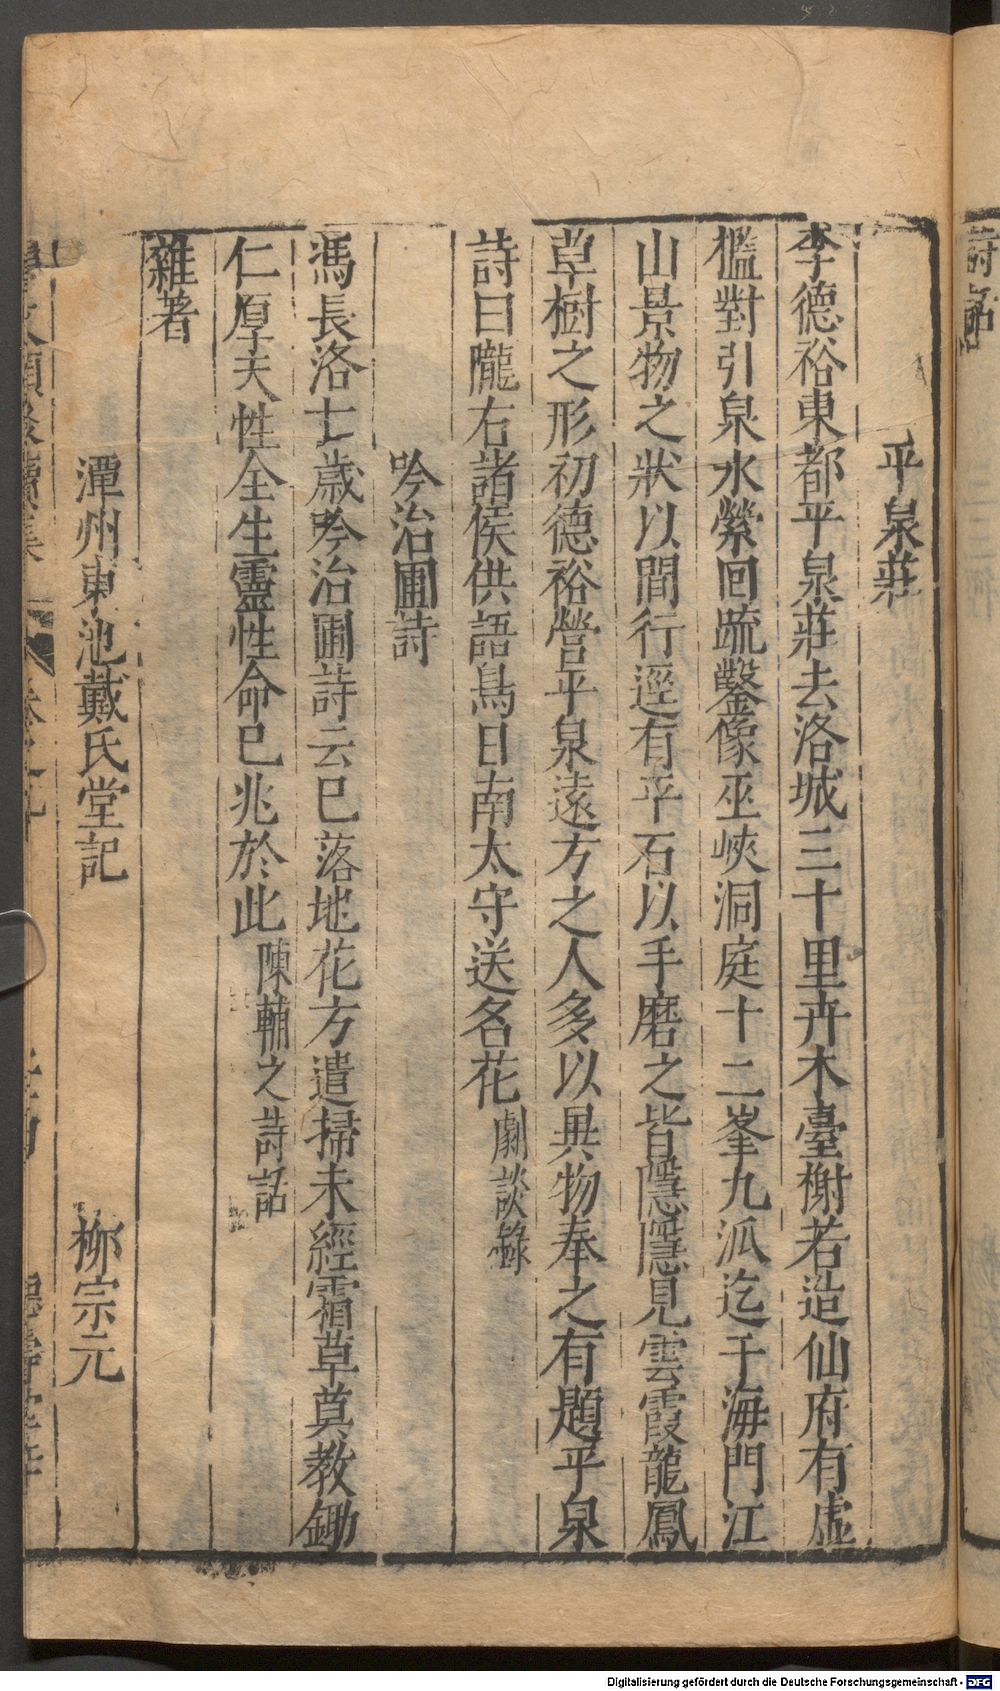 平泉莊
李德裕東都平泉莊去洛城三十里卉木臺榭若造仙府有虛
檻對引泉水縈回疏鑿像巫峽洞庭十二峯九派迄于海門江
山景物之狀以間行逕有平石以手磨之皆隱隱見雲霞龍鳳
草樹之形初德裕營平泉遠方之人多以異物奉之有題平泉
詩曰隴右諸侯供語鳥日南太守送名花 劇談錄
吟治圃詩
馮長洛七歲吟治圃詩云已落地花方遣掃未經霜草莫教鋤
仁厚夫性全生靈性命已兆於此 陳輔之詩話
雜著
潭州東池戴氏堂記 柳宗元
Digitalisierung gefördert durch die Deutsche Forschungsgemeinschaft - DFG